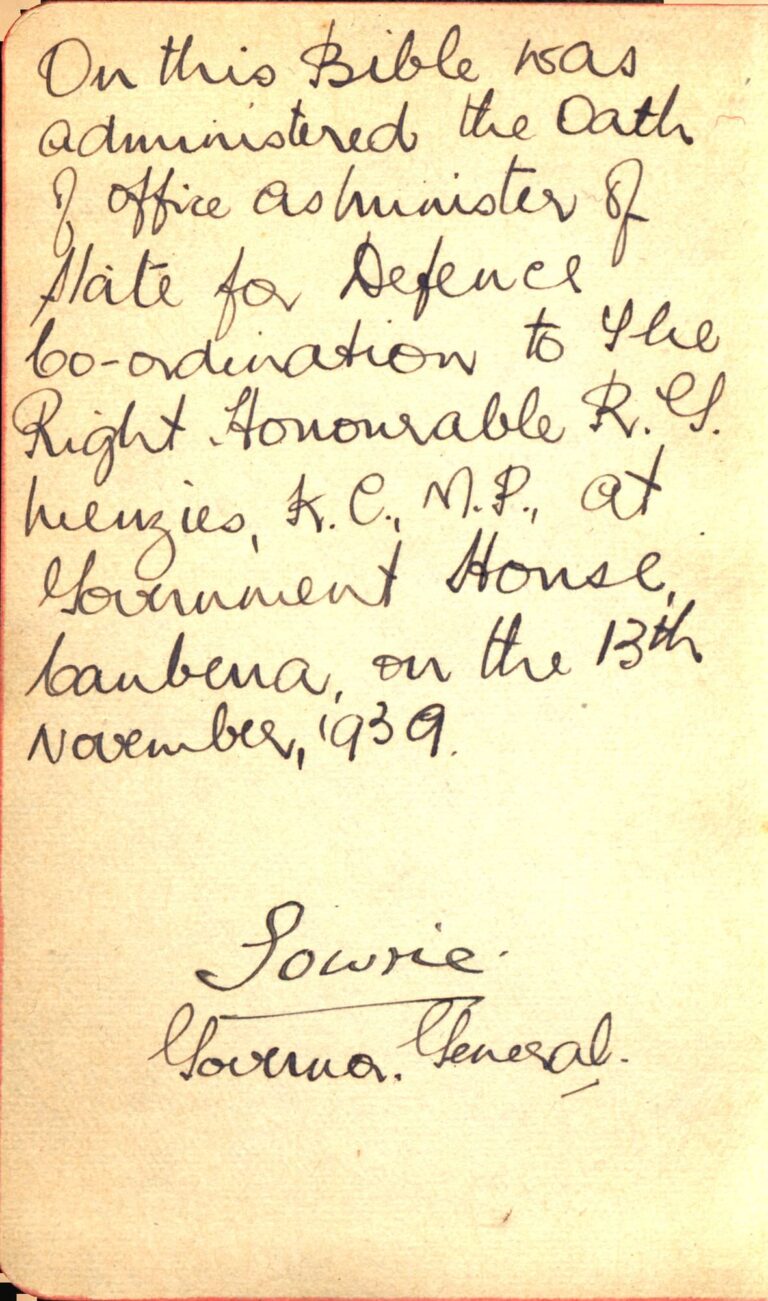 On this Bible was
administered the Oath
of office as Minister of
State for Defence
Co-ordination to The
Right Honourable R. G.
Menzies, K.C., M.P., at
Government House,
Canberra, on the 13th
November, 1939.
Gowrie.
Governor. General.